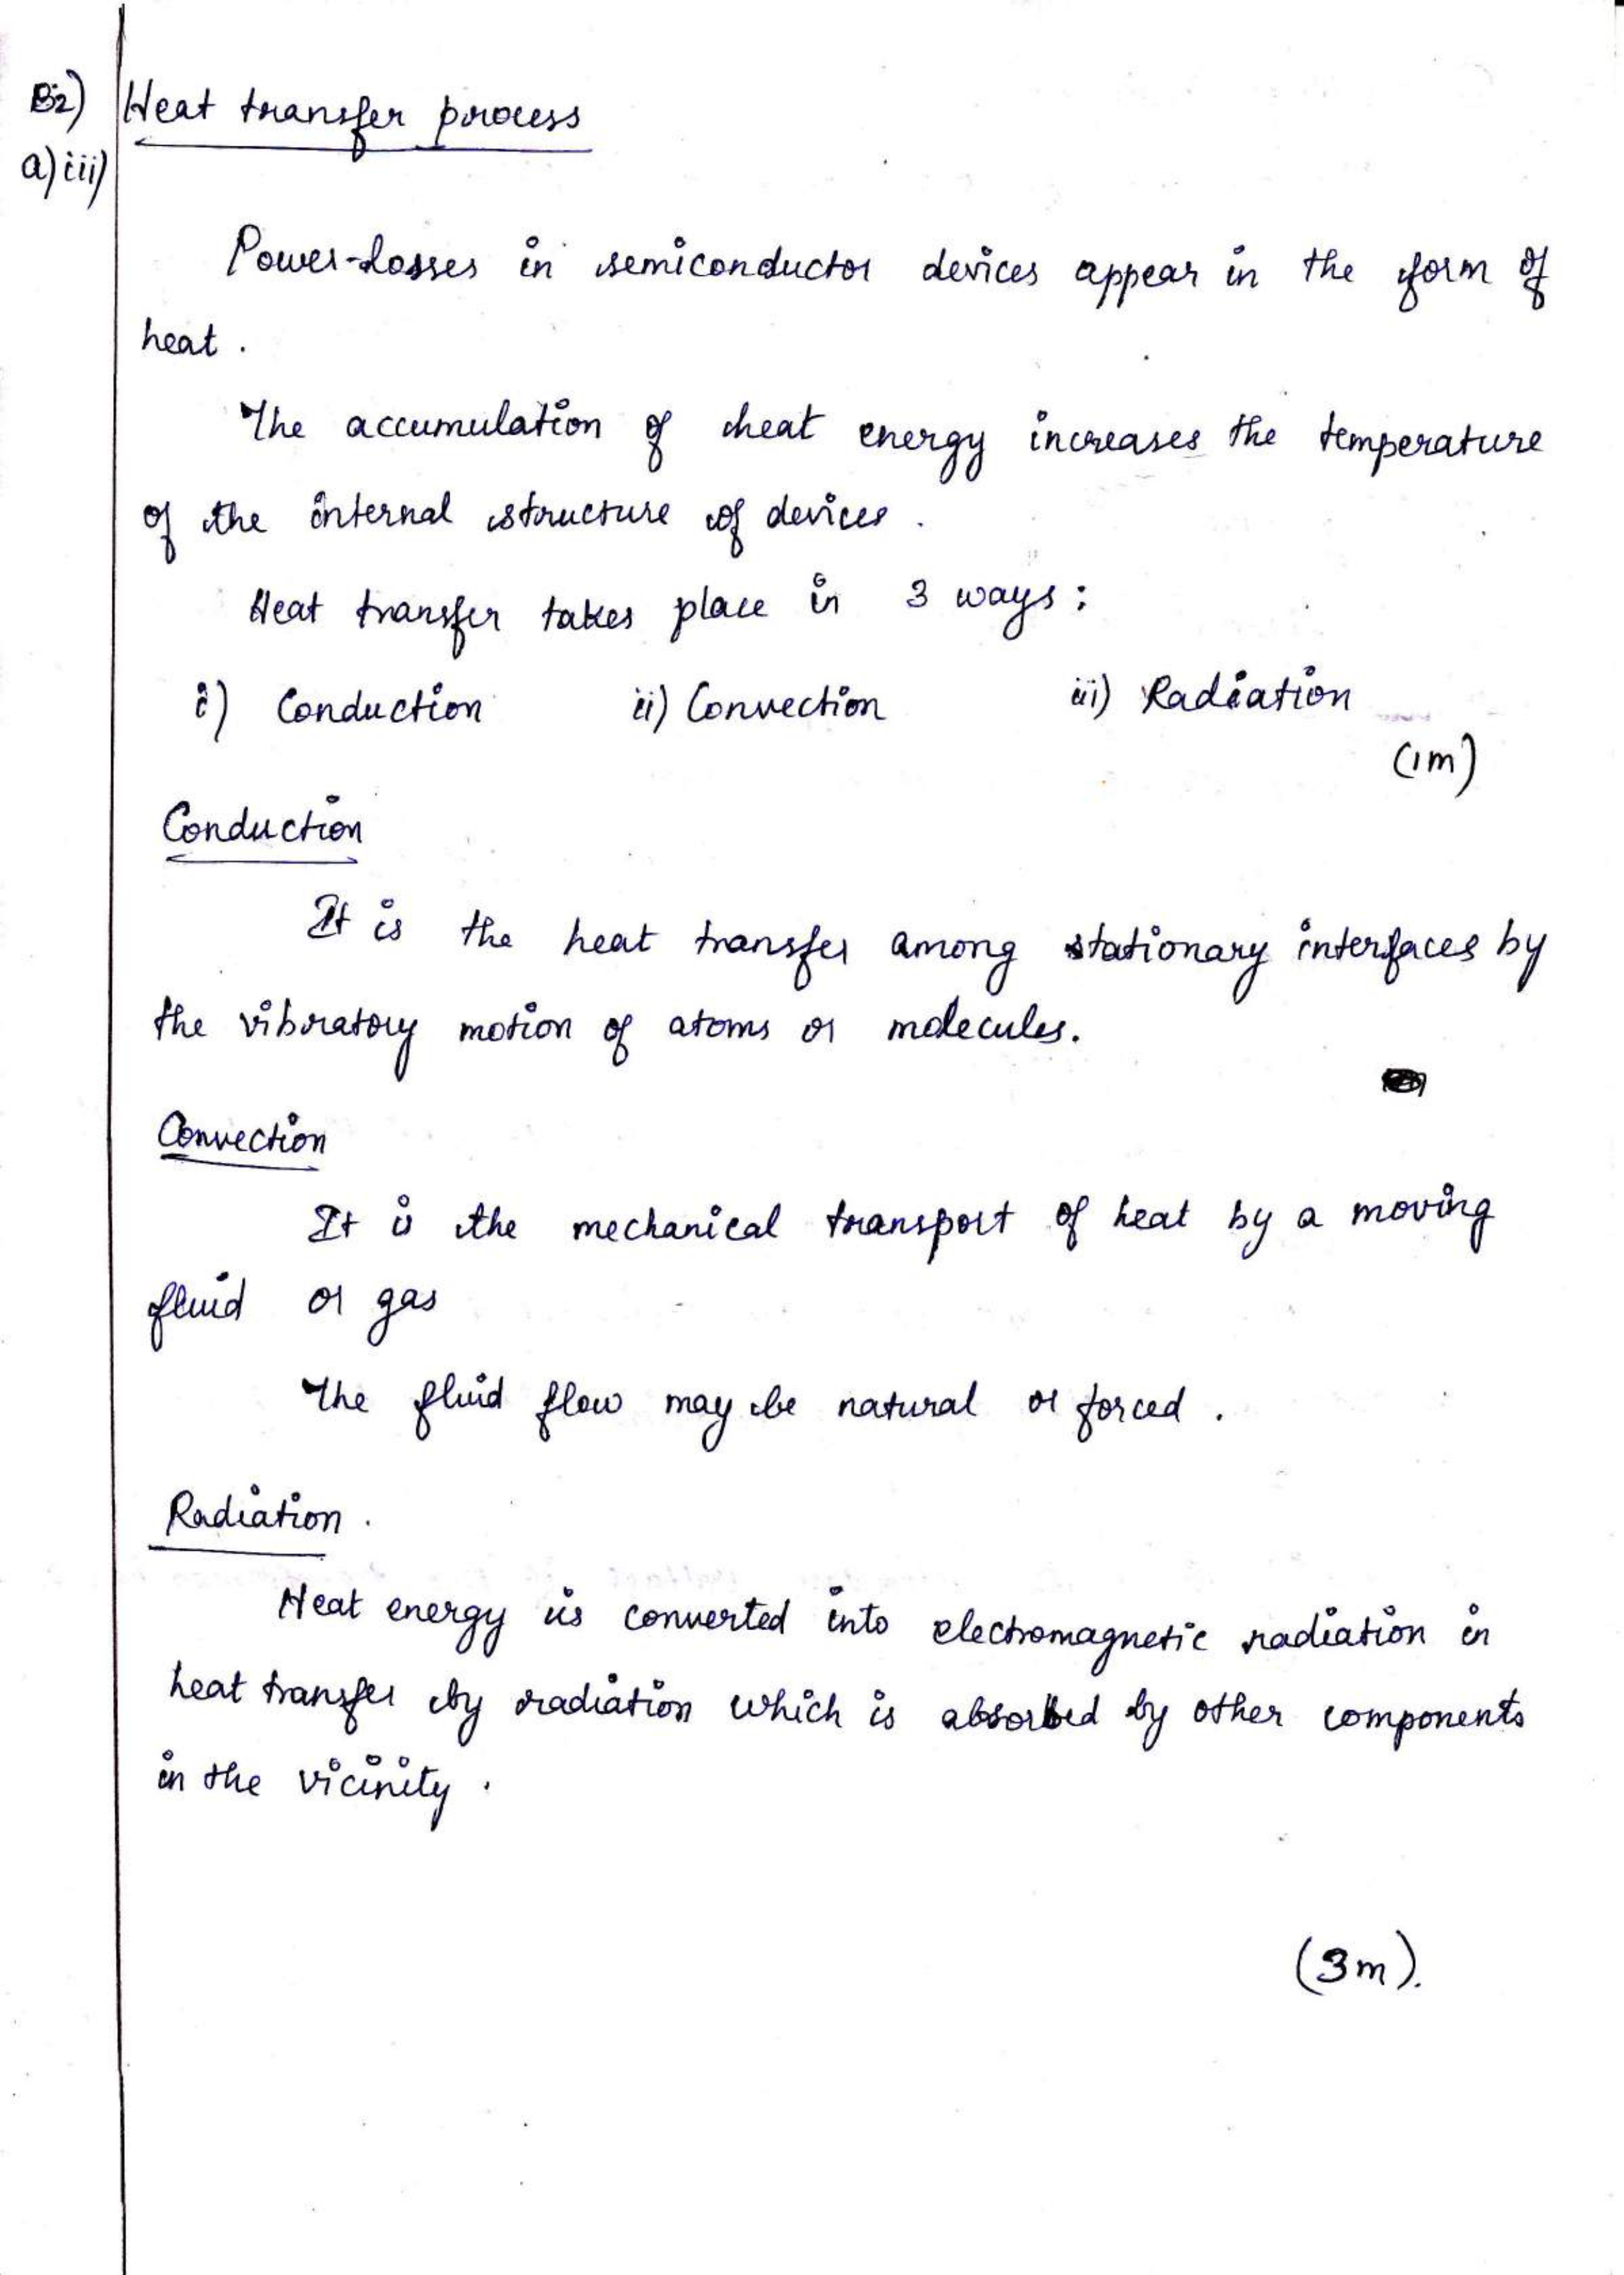 B2) Heat transfer process
a) iii)
Power-losses in semiconductor devices appear in the form of
heat .
The accumulation of heat energy increases the temperature
of the internal structure of devices .
Heat transfer takes place in 3 ways :
i) Conduction ii) Convection iii) Radiation
(1m)
Conduction
It is the heat transfer among stationary interfaces by
the vibratory motion of atoms or molecules.
Convection
It is the mechanical transport of heat by a moving
fluid or gas
The fluid flow may be natural or forced .
Radiation .
Heat energy is converted into electromagnetic radiation in
heat transfer by radiation which is absorbed by other components
in the vicinity .
(3m).